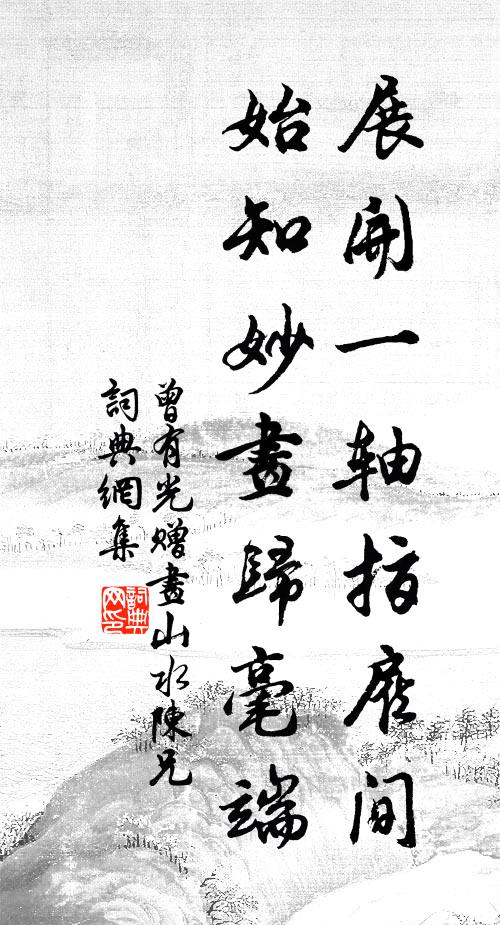 展開一軸指麾間
始知妙畫歸毫端
曾有光贈畫山水陳兄
詞典網集
詞典
网印